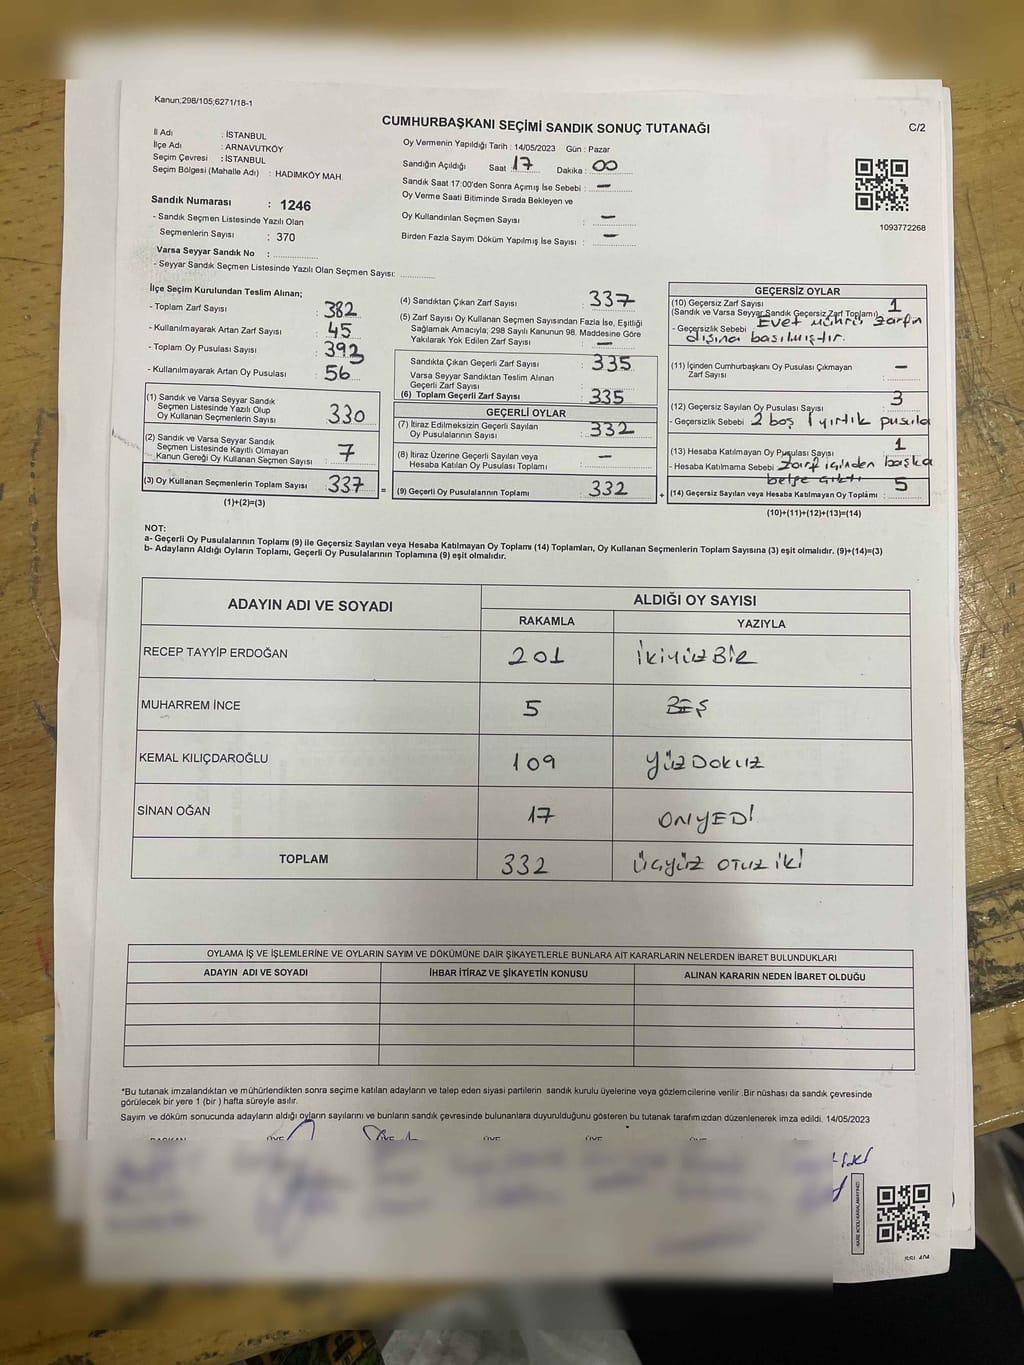 Kanun;298/105;6271/18-1
CUMHURBAŞKANI SEÇİMİ SANDIK SONUÇ TUTANAĞI
C/2
İl Adı : İSTANBUL
İlçe Adı : ARNAVUTKÖY
Seçim Çevresi : İSTANBUL
Seçim Bölgesi (Mahalle Adı) : HADIMKÖY MAH.
Sandık Numarası : 1246
- Sandık Seçmen Listesinde Yazılı Olan
Seçmenlerin Sayısı : 370
Varsa Seyyar Sandık No :
- Seyyar Sandık Seçmen Listesinde Yazılı Olan Seçmen Sayısı:
Oy Vermenin Yapıldığı Tarih : 14/05/2023 Gün : Pazar
Sandığın Açıldığı Saat : 17 Dakika : 00
Sandık Saat 17:00'den Sonra Açımış İse Sebebi : –
Oy Verme Saati Bitiminde Sırada Bekleyen ve
Oy Kullandırılan Seçmen Sayısı : –
Birden Fazla Sayım Döküm Yapılmış İse Sayısı : –
1093772268
İlçe Seçim Kurulundan Teslim Alınan;
- Toplam Zarf Sayısı : 382
- Kullanılmayarak Artan Zarf Sayısı : 45
- Toplam Oy Pusulası Sayısı : 393
- Kullanılmayarak Artan Oy Pusulası : 56
(1) Sandık ve Varsa Seyyar Sandık
Seçmen Listesinde Yazılı Olup
Oy Kullanan Seçmenlerin Sayısı : 330
(2) Sandık ve Varsa Seyyar Sandık
Seçmen Listesinde Kayıtlı Olmayan
Kanun Gereği Oy Kullanan Seçmen Sayısı : 7
(3) Oy Kullanan Seçmenlerin Toplam Sayısı : 337 =
(1)+(2)=(3)
(4) Sandıktan Çıkan Zarf Sayısı : 337
(5) Zarf Sayısı Oy Kullanan Seçmen Sayısından Fazla İse, Eşitliği
Sağlamak Amacıyla; 298 Sayılı Kanunun 98. Maddesine Göre
Yakılarak Yok Edilen Zarf Sayısı : –
Sandıkta Çıkan Geçerli Zarf Sayısı : 335
Varsa Seyyar Sandıktan Teslim Alınan
Geçerli Zarf Sayısı :
(6) Toplam Geçerli Zarf Sayısı : 335
GEÇERLİ OYLAR
(7) İtiraz Edilmeksizin Geçerli Sayılan
Oy Pusulalarının Sayısı : 332
(8) İtiraz Üzerine Geçerli Sayılan veya
Hesaba Katılan Oy Pusulası Toplamı : –
(9) Geçerli Oy Pusulalarının Toplamı : 332 +
GEÇERSİZ OYLAR
(10) Geçersiz Zarf Sayısı 1
(Sandık ve Varsa Seyyar Sandık Geçersiz Zarf Toplamı)
- Geçersizlik Sebebi Evet mührü zarfın
dışına basılmıştır.
(11) İçinden Cumhurbaşkanı Oy Pusulası Çıkmayan
Zarf Sayısı : –
(12) Geçersiz Sayılan Oy Pusulası Sayısı : 3
- Geçersizlik Sebebi 2 boş 1 yırtık pusula
(13) Hesaba Katılmayan Oy Pusulası Sayısı : 1
- Hesaba Katılmama Sebebi Zarf içinden başka
belge çıktı
(14) Geçersiz Sayılan veya Hesaba Katılmayan Oy Toplamı : 5
(10)+(11)+(12)+(13)=(14)
NOT:
a- Geçerli Oy Pusulalarının Toplamı (9) ile Geçersiz Sayılan veya Hesaba Katılmayan Oy Toplamı (14) Toplamları, Oy Kullanan Seçmenlerin Toplam Sayısına (3) eşit olmalıdır. (9)+(14)=(3)
b- Adayların Aldığı Oyların Toplamı, Geçerli Oy Pusulalarının Toplamına (9) eşit olmalıdır.
ADAYIN ADI VE SOYADI ALDIĞI OY SAYISI
RAKAMLA YAZIYLA
RECEP TAYYİP ERDOĞAN 201 İKİYÜZBİR
MUHARREM İNCE 5 BEŞ
KEMAL KILIÇDAROĞLU 109 YÜZDOKUZ
SİNAN OĞAN 17 ONYEDİ
TOPLAM 332 ÜÇYÜZ OTUZ İKİ
OYLAMA İŞ VE İŞLEMLERİNE VE OYLARIN SAYIM VE DÖKÜMÜNE DAİR ŞİKAYETLERLE BUNLARA AİT KARARLARIN NELERDEN İBARET BULUNDUKLARI
ADAYIN ADI VE SOYADI İHBAR İTİRAZ VE ŞİKAYETİN KONUSU ALINAN KARARIN NEDEN İBARET OLDUĞU
*Bu tutanak imzalandıktan ve mühürlendikten sonra seçime katılan adayların ve talep eden siyasi partilerin sandık kurulu üyelerine veya gözlemcilerine verilir .Bir nüshası da sandık çevresinde
görülecek bir yere 1 (bir ) hafta süreyle asılır.
Sayım ve döküm sonucunda adayların aldığı oyların sayılarını ve bunların sandık çevresinde bulunanlara duyurulduğunu gösteren bu tutanak tarafımızdan düzenlenerek imza edildi. 14/05/2023